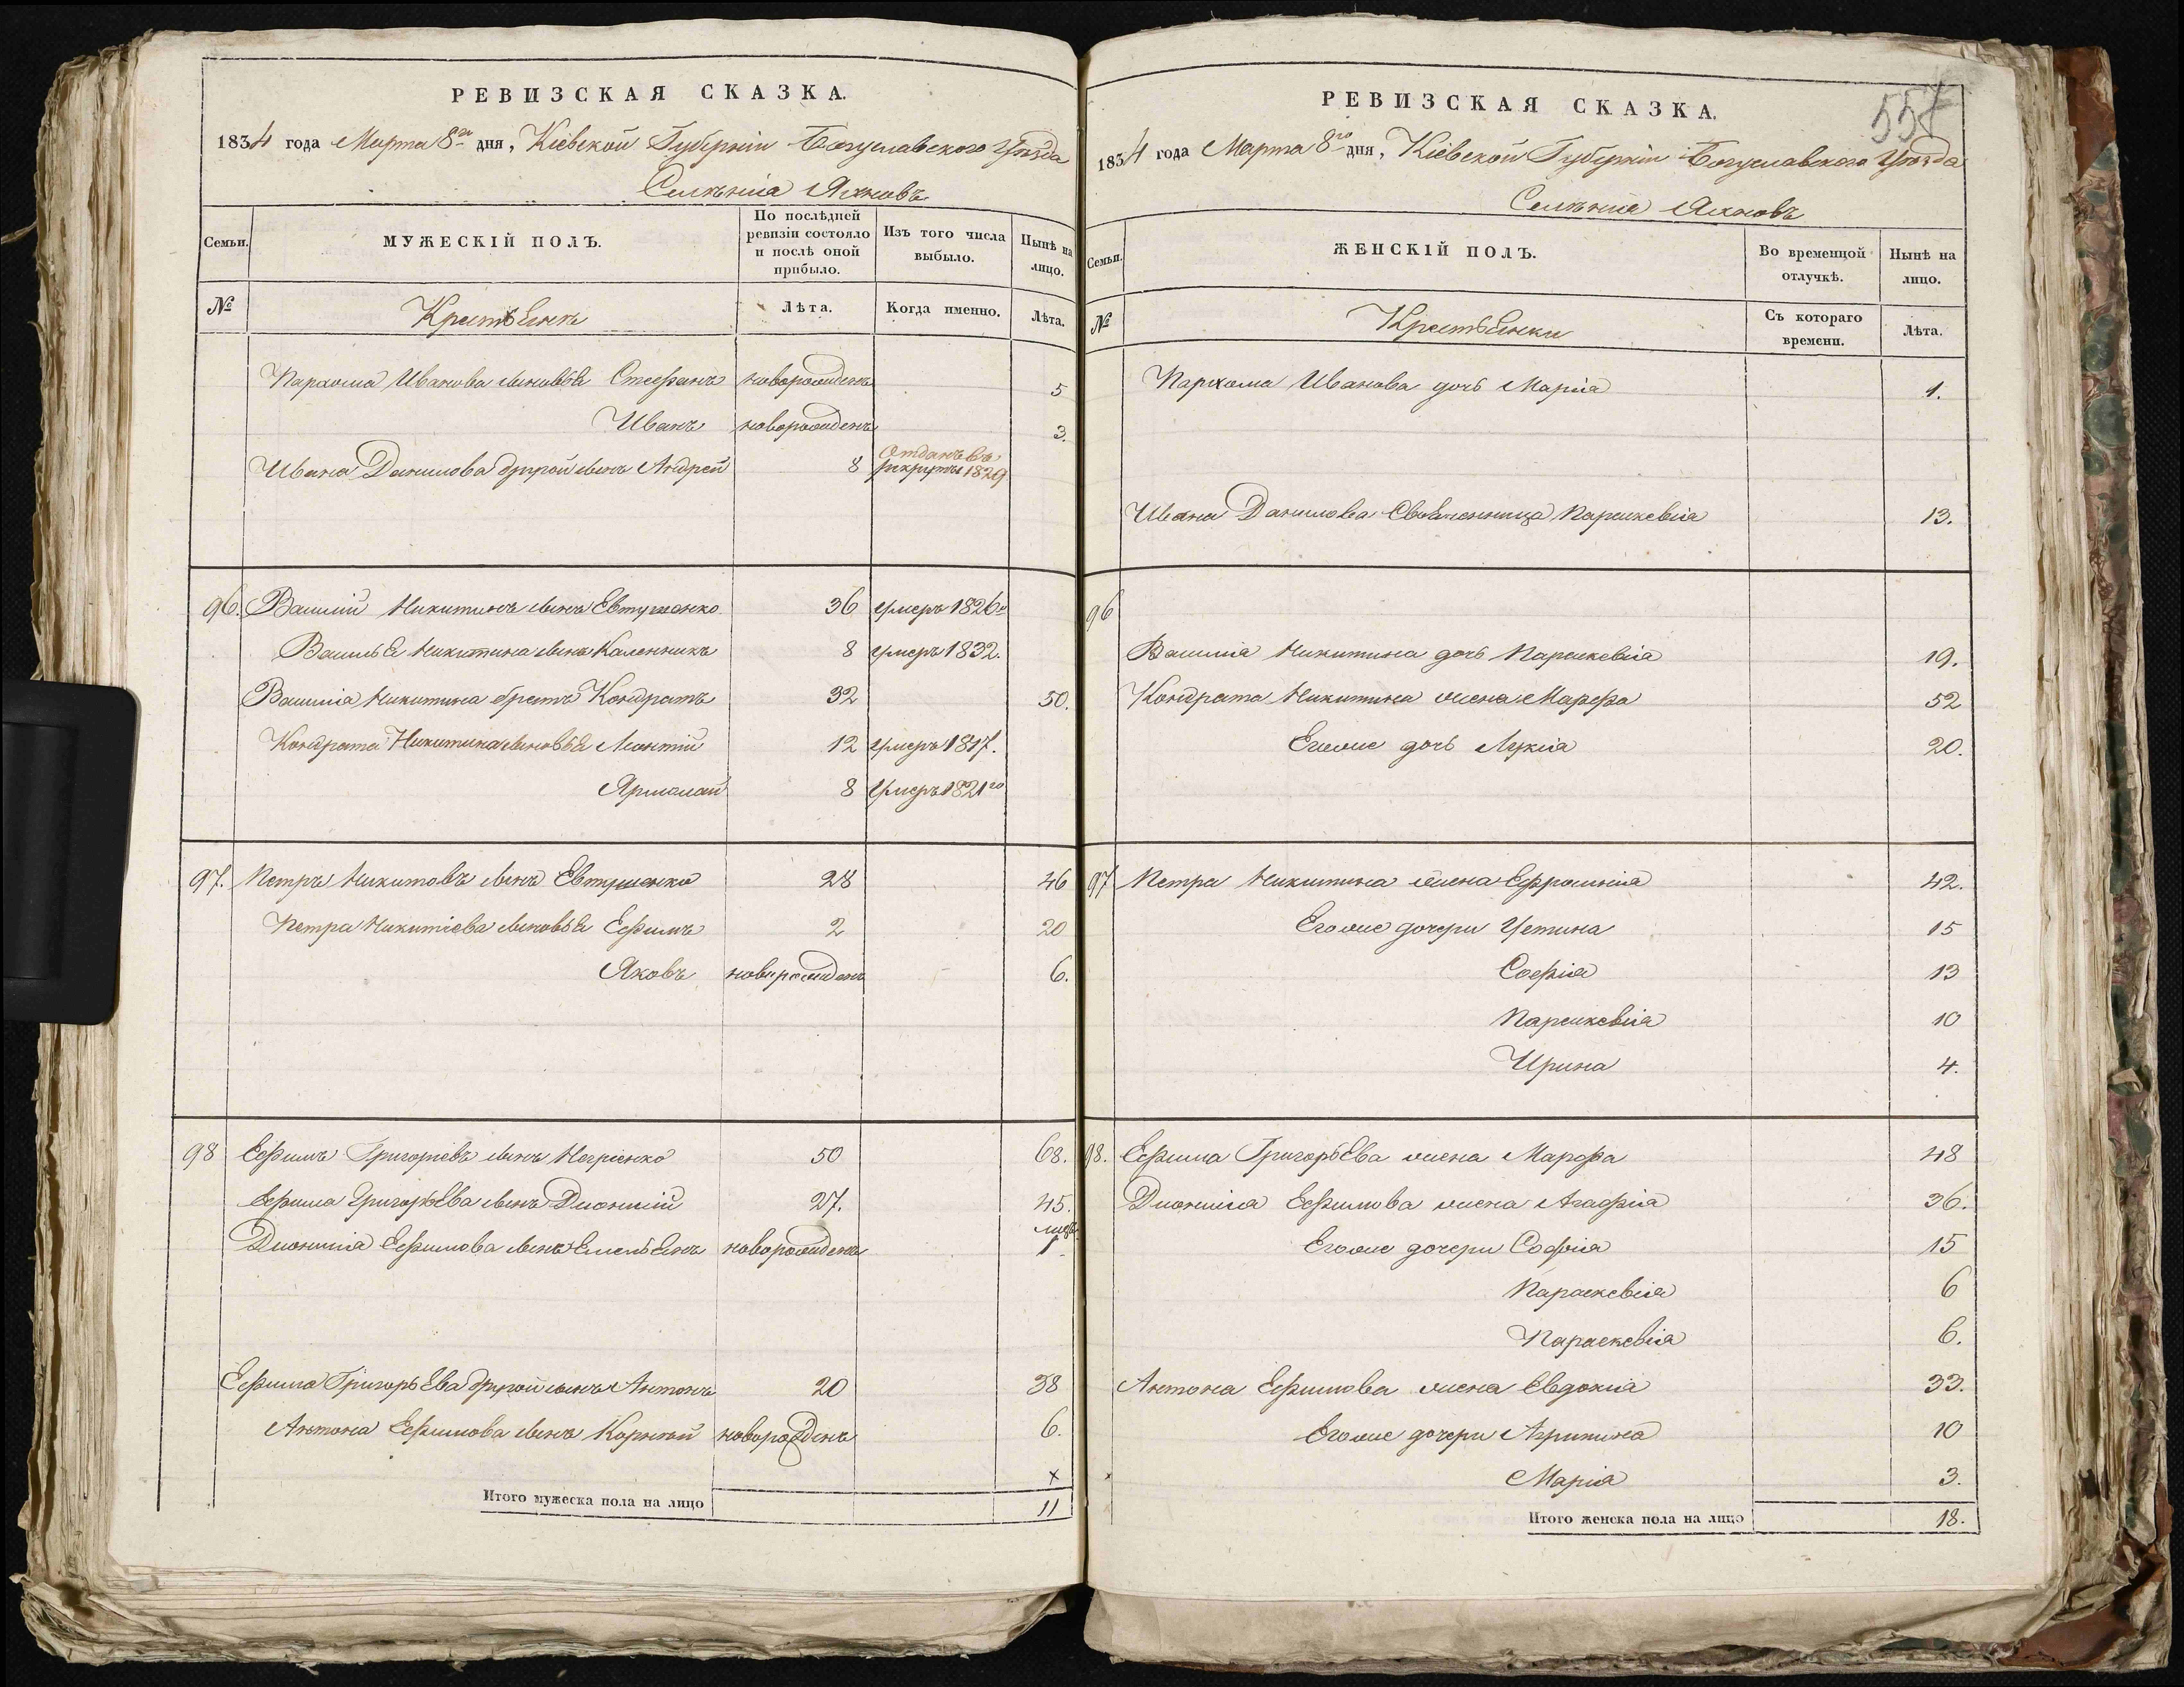 РЕВИЗСКАЯ СКАЗКА.
1834 года Марта 8го дня, Кіевской Губерніи Богуславского Уѣзда
Селѣнія Яхновъ
Семьи.
МУЖЕСКІЙ ПОЛЪ.
По послѣдней ревизіи состояло и послѣ оной прибыло.
Изъ того числа выбыло.
Нынѣ на лицо.
№
Крестьянъ
Лѣта.
Когда именно.
Лѣта.
Пархома Иванова сыновья Стефанъ новорожденъ 5
Иванъ новорожденъ 3.
Ивана Данилова другой сынъ Андрей 8 Отданъ въ рекруты 1829
96. Василій Никитинъ сынъ Евтушенко 36 умеръ 1826го
Василья Никитина сынъ Каленникъ 8 умеръ 1832.
Василіа Никитина братъ Кондратъ 32 50.
Кондрата Никитина сыновья Леонтій 12 умеръ 1817.
Ярмолай 8 умеръ 1821го
97. Петръ Никитовъ сынъ Евтушенко 28 46
Петра Никитіева сыновья Ефимъ 2 20
Яковъ новорожденъ 6.
98 Ефимъ Григоріевъ сынъ 50 68.
Ефима Григорьева сынъ Діонисій 27. 45.
Діонисіа Ефимова сынъ Емельянъ новорожденъ 1
Ефима Григорьева другой сынъ Антонъ 20 38
Антона Ефимова сынъ Корней новорожденъ 6.
x
Итого мужеска пола на лицо 11
557
РЕВИЗСКАЯ СКАЗКА.
1834 года Марта 8го дня, Кіевской Губерніи Богуславского Уѣзда
Селѣнія Яхновъ
Семьи.
ЖЕНСКІЙ ПОЛЪ.
Во временной отлучкѣ.
Нынѣ на лицо.
№
Крестьянки
Съ котораго времени.
Лѣта.
Пархома Иванова дочь Маріа 1.
Ивана Данилова Своячинница Параскевіа 13.
96
Василіа Никитина дочь Параскевіа 19.
Кондрата Никитина жена Марфа 52
Егоже дочь Лукіа 20.
97 Петра Никитина жена Ефросиніа 42.
Егоже дочери Устина 15
Софіа 13
Параскевіа 10
Ирина 4.
98. Ефима Григорьева жена Марфа 48
Діонисіа Ефимова жена Агафіа 36.
Егоже дочери Софіа 15
Параскевіа 6
Параскевіа 6.
Антона Ефимова жена Евдокіа 33.
Егоже дочери Агрипина 10
Маріа 3.
Итого женска пола на лицо 18.